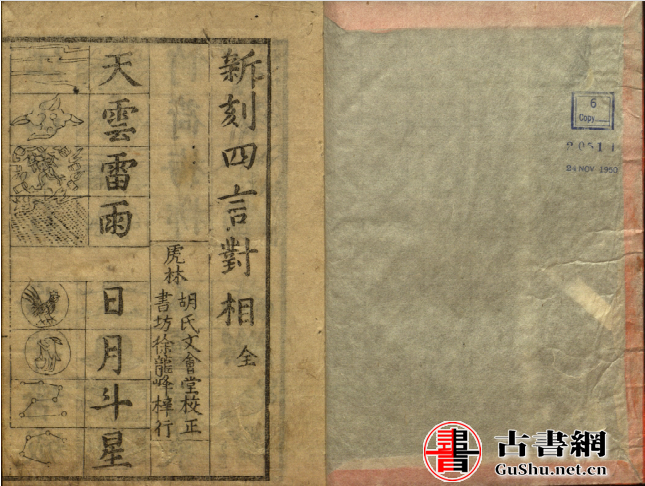 新刻四言對相 全
虎林
胡氏文會堂校正
書坊徐龍峰梓行
天雲雷雨
日月斗星
6
Copy
20511
24 NOV 1950
書
古書網
GuShu.net.cn